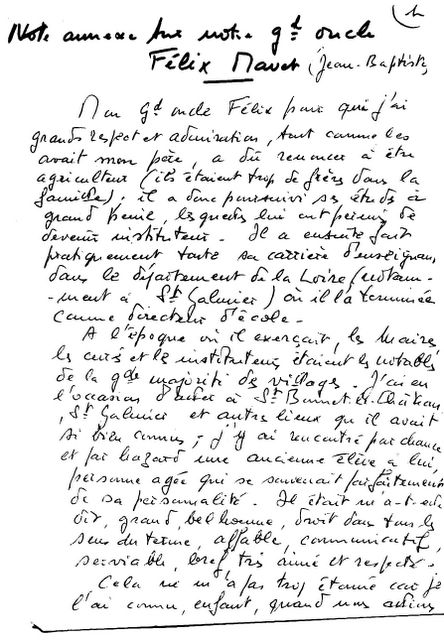 1
Note annexe sur notre gd oncle
Félix Mavet (Jean-Baptiste
Mon Gd oncle Félix pour qui j'ai
grands respect et admiration, tout comme les
avait mon père, a dû renoncer à être
agriculteur (ils étaient trop de frères dans la
famille); il a donc poursuivi ses études à
grand peine, lesquelles lui ont permis de
devenir instituteur. Il a ensuite fait
pratiquement toute sa carrière d'enseignant
dans le département de la Loire (notam-
-ment à St Galmier) où il l'a terminée
comme directeur d'école.
A l'époque où il exerçait, les Maires,
les curés et les instituteurs étaient les notables
de la gde majorité des villages. J'ai eu
l'occasion d'aller à St Bonnet-le-Château,
, St Galmier et autres lieux qu'il avait
si bien connus; j'y ai rencontré par chance
et par hazard une ancienne élève à lui,
personne agée qui se souvenait parfaitement
de sa personnalité. Il était m'a-t-elle
dit, grand, bel homme, droit dans tous les
sens du terme, affable, communicatif,
serviable, bref, très aimé et respecté.
Cela ne m'a pas trop étonné car je
l'ai connu, enfant, quand nous allions